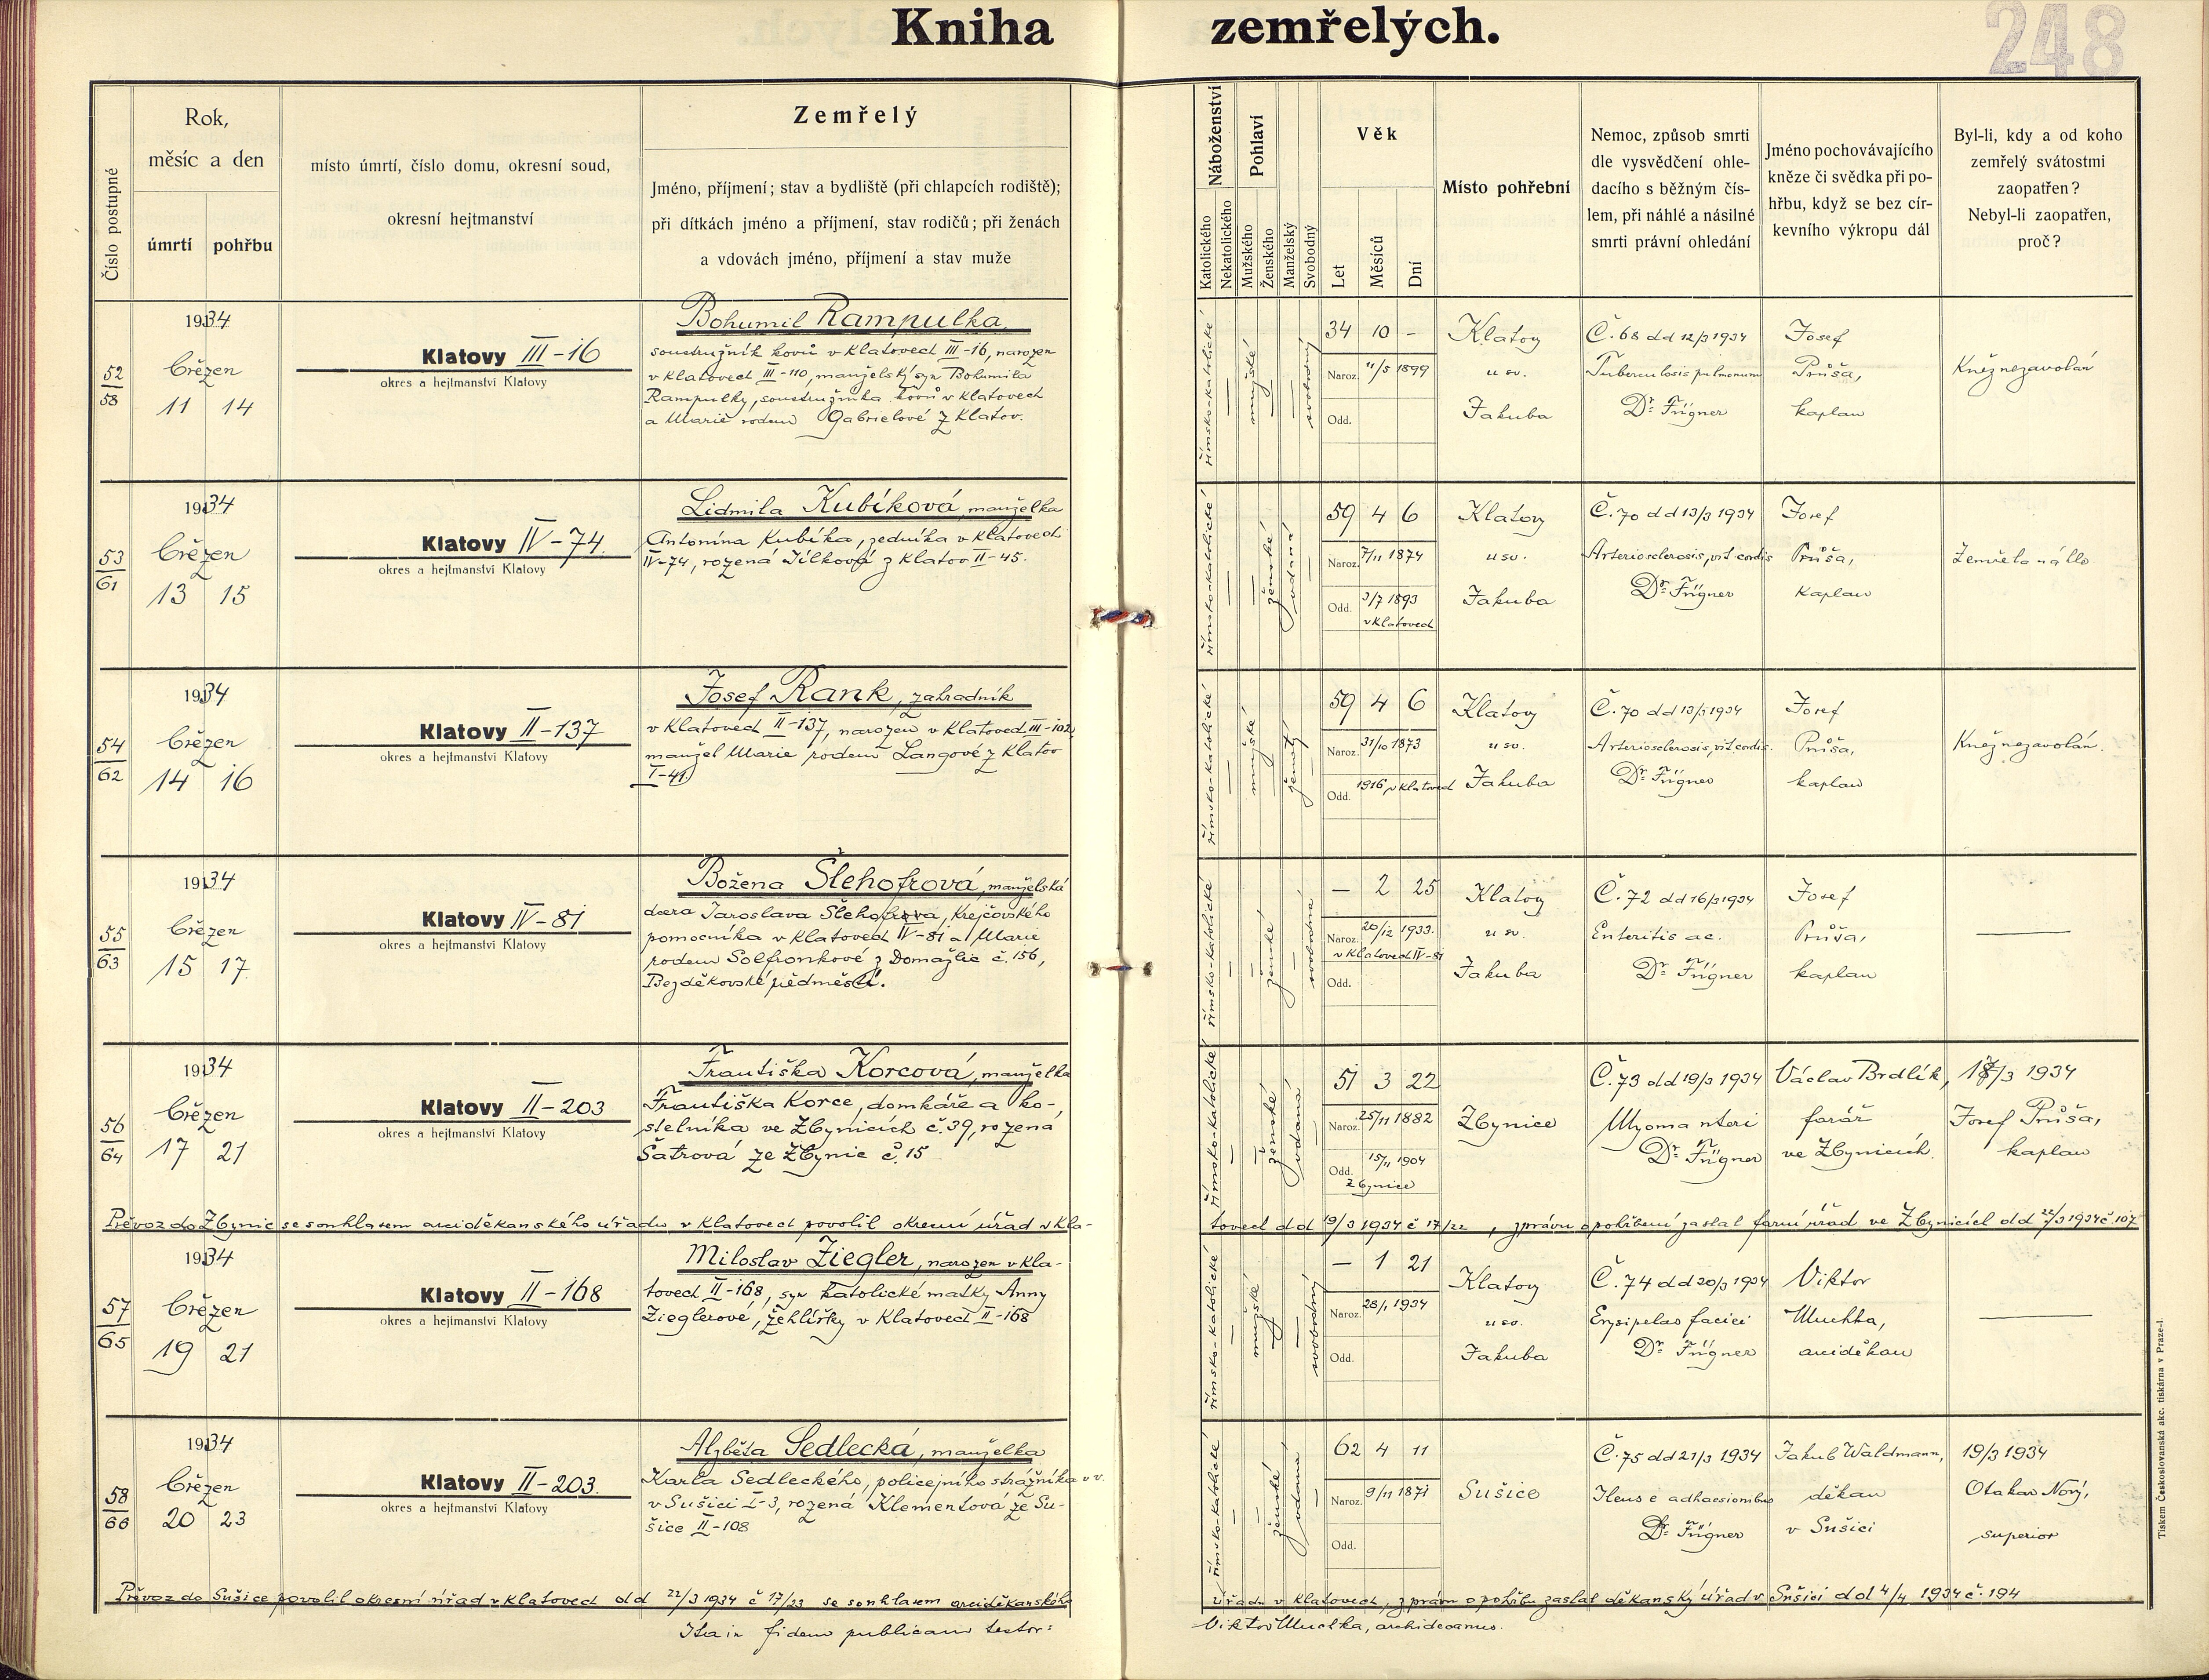 Kniha zemřelých.
248
Číslo postupné
Rok,
měsíc a den
úmrtí pohřbu
místo úmrtí, číslo domu, okresní soud,
okresní hejtmanství
Zemřelý
Jméno, příjmení; stav a bydliště (při chlapcích rodiště);
při dítkách jméno a příjmení, stav rodičů; při ženách
a vdovách jméno, příjmení a stav muže
Náboženství
Katolického
Nekatolického
Pohlaví
Mužského
Ženského
Manželský
Svobodný
Věk
Let
Měsíců
Dní
Místo pohřební
Nemoc, způsob smrti
dle vysvědčení ohle-
dacího s běžným čís-
lem, při náhlé a násilné
smrti právní ohledání
Jméno pochovávajícího
kněze či svědka při po-
hřbu, když se bez cír-
kevního výkropu dál
Byl-li, kdy a od koho
zemřelý svátostmi
zaopatřen?
Nebyl-li zaopatřen,
proč?
52
58
1934
březen
11 14
Klatovy III-16
okres a hejtmanství Klatovy
Bohumil Rampulka,
soustružník kovů v Klatovech III-16, narozen
v Klatovech III-110, manželský syn Bohumila
Rampulky, soustružníka kovů v Klatovech
a Marie rodem Gabrielové z Klatov.
římsko-katolické
mužské
svobodný
34 10 -
Naroz. 11/5 1899
Odd.
Klatovy
u sv.
Jakuba
Č. 68 dd 12/3 1934
Tuberculosis pulmonum
Dr. Fügner
Josef
Průša,
kaplan
Kněz nezavolán
53
61
1934
březen
13 15
Klatovy IV-74.
okres a hejtmanství Klatovy
Lidmila Kubíková, manželka
Antonína Kubíka, zedníka v Klatovech
IV-74, rozená Jílková z Klatov II-45.
římsko-katolické
ženské
vdaná
59 4 6
Naroz. 7/11 1874
Odd. 3/7 1893
v Klatovech
Klatovy
u sv.
Jakuba
Č. 70 dd 13/3 1934
Arteriosclerosis, vit. cordis
Dr. Fügner
Josef
Průša,
kaplan
Zemřela náhle
54
62
1934
březen
14 16
Klatovy II-137
okres a hejtmanství Klatovy
Josef Rank, zahradník
v Klatovech II-137, narozen v Klatovech III-102,
manžel Marie rodem Langové z Klatov
I-41)
římsko-katolické
mužské
ženatý
59 4 6
Naroz. 31/10 1873
Odd. 1916, v Klatovech
Klatovy
u sv.
Jakuba
Č. 70 dd 13/3 1934
Arteriosclerosis, vit. cordis.
Dr. Fügner
Josef
Průša,
kaplan
Kněz nezavolán.
55
63
1934
březen
15 17.
Klatovy IV-81
okres a hejtmanství Klatovy
Božena Šlehofrová, manželská
dcera Jaroslava Šlehofra, krejčovského
pomocníka v Klatovech IV-81 a Marie
rodem Solfronkové z Domažlic č. 156,
Bezděkovské předměstí.
římsko-katolické
ženské
svobodná
— 2 25
Naroz. 20/12 1933.
v Klatovech IV-81
Odd.
Klatovy
u sv.
Jakuba
Č. 72 dd 16/3 1934
Enteritis ac.
Dr. Fügner
Josef
Průša,
kaplan
56
64
1934
březen
17 21
Klatovy II-203
okres a hejtmanství Klatovy
Františka Korcová, manželka
Františka Korce, domkáře a ko-
stelníka ve Zbynicích č. 39, rozená
Šatrová ze Zbynic č. 15
římsko-katolické
ženské
vdaná
51 3 22
Naroz. 25/11 1882
Odd. 15/11 1904
Zbynice
Zbynice
Č. 73 dd 19/3 1934
Myoma uteri
Dr. Fügner
Václav Brdlík,
farář
ve Zbynicích.
/3 1934
Josef Průša,
kaplan
Převoz do Zbynic se souhlasem arciděkanského úřadu v Klatovech povolil okresní úřad v Kla-
tovech dd 19/3 1934 č 17/22, zprávu o pohřbení zaslal farní úřad ve Zbynicích dd 22/3 1934 č. 107
57
65
1934
březen
19 21
Klatovy II-168
okres a hejtmanství Klatovy
Miloslav Ziegler, narozen v Kla-
tovech II-168, syn katolické matky Anny
Zieglerové, žehlířky v Klatovech II-168
římsko-katolické
mužské
svobodný
— 1 21
Naroz. 28/1 1934
Odd.
Klatovy
u sv.
Jakuba
Č. 74 dd 20/3 1934
Erysipelas faciei
Dr. Fügner
Viktor
Muchka,
arciděkan
58
66
1934
březen
20 23
Klatovy II-203.
okres a hejtmanství Klatovy
Alžběta Sedlecká, manželka
Karla Sedleckého, policejního strážníka v v.
v Sušici I-3, rozená Klementová ze Su-
šice II-108
římsko-katolické
ženské
vdaná
62 4 11
Naroz. 9/11 1871
Odd.
Sušice
Č. 75 dd 21/3 1934
Ileus e adhaesionibus
Dr. Fügner
Jakub Waldmann,
děkan
v Sušici
19/3 1934
Otakar Nový,
superior
Převoz do Sušice povolil okresní úřad v Klatovech dd 22/3 1934 č 17/23 se souhlasem arciděkanského
úřadu v Klatovech, zprávu o pohřbu zaslal děkanský úřad v Sušici dd 4/4 1934 č. 194
Ita in fidem publicam testor:
Viktor Muchka, archidecanus.
Tiskem Československá akc. tiskárna v Praze-I.